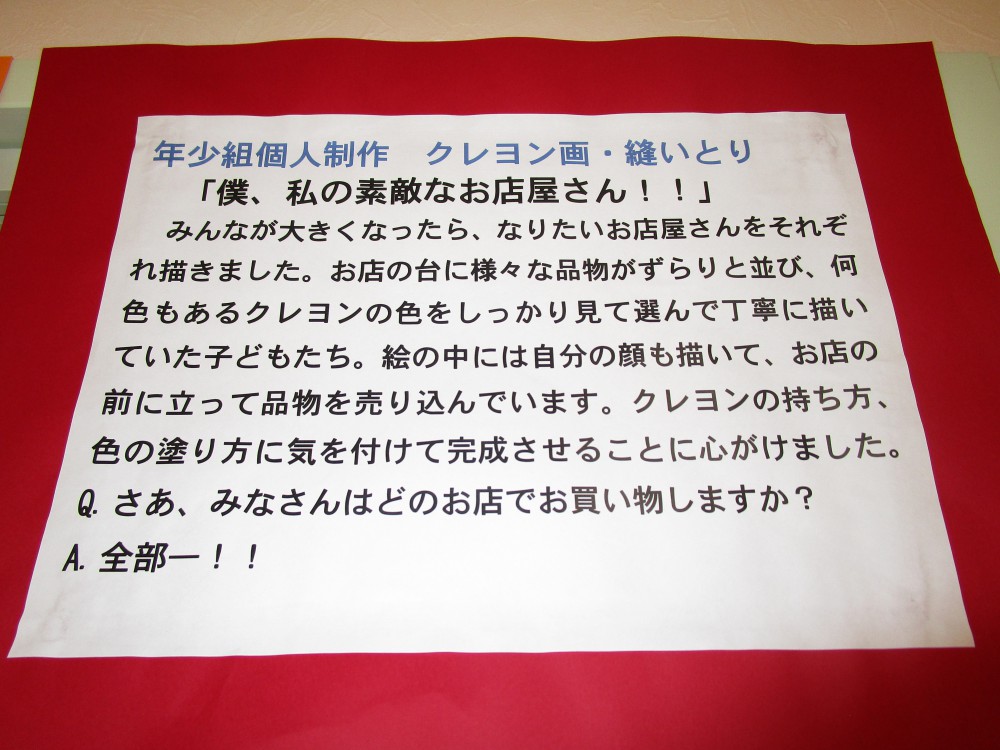 年少組個人制作　クレヨン画・縫いとり
「僕、私の素敵なお店屋さん！！」
みんなが大きくなったら、なりたいお店屋さんをそれぞ
れ描きました。お店の台に様々な品物がずらりと並び、何
色もあるクレヨンの色をしっかり見て選んで丁寧に描い
ていた子どもたち。絵の中には自分の顔も描いて、お店の
前に立って品物を売り込んでいます。クレヨンの持ち方、
色の塗り方に気を付けて完成させることに心がけました。
Q. さあ、みなさんはどのお店でお買い物しますか？
A. 全部―！！